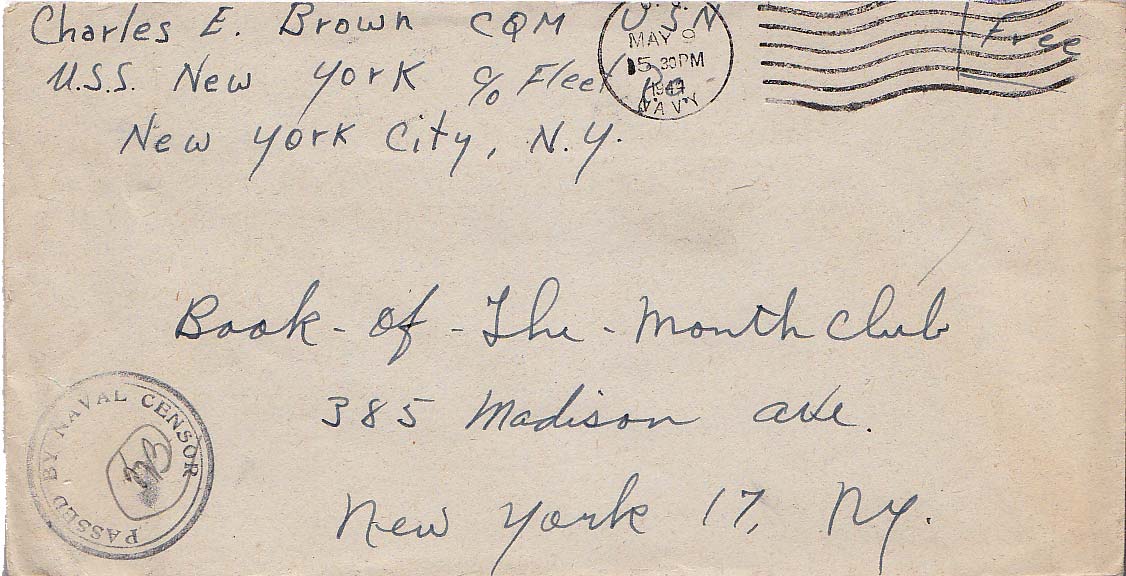 Charles E. Brown CQM USN
U.S.S. New York c/o Fleet P.O.
New York City, N.Y.
MAY 9
5 30 PM
1944
NAVY
Free
Book-Of-The-Month Club
385 Madison ave.
New York 17, Ny.
PASSED BY NAVAL CENSOR